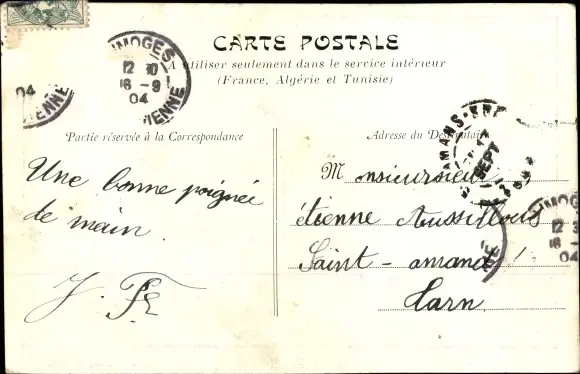 CARTE POSTALE
A utiliser seulement dans le service intérieur
(France, Algérie et Tunisie)
LIMOGES
12 10
16 - 9
04
VIENNE
04
VIENNE
Partie réservée à la Correspondance
Une bonne poignée
de main.
Adresse du Destinataire
SEPT
Monsieur
étienne Aussillous
Saint - amand
Tarn
LIMOGES
12
16 -
04